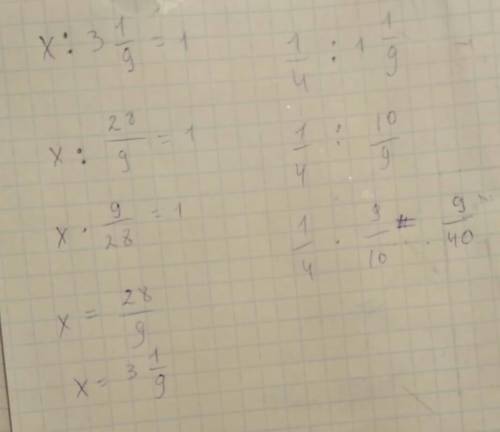 x : 3 1/9 = 1
x : 28/9 = 1
x · 9/28 = 1
x = 28/9
x = 3 1/9
1/4 : 1 1/9
1/4 : 10/9
1/4 · 9/10 = 9/40